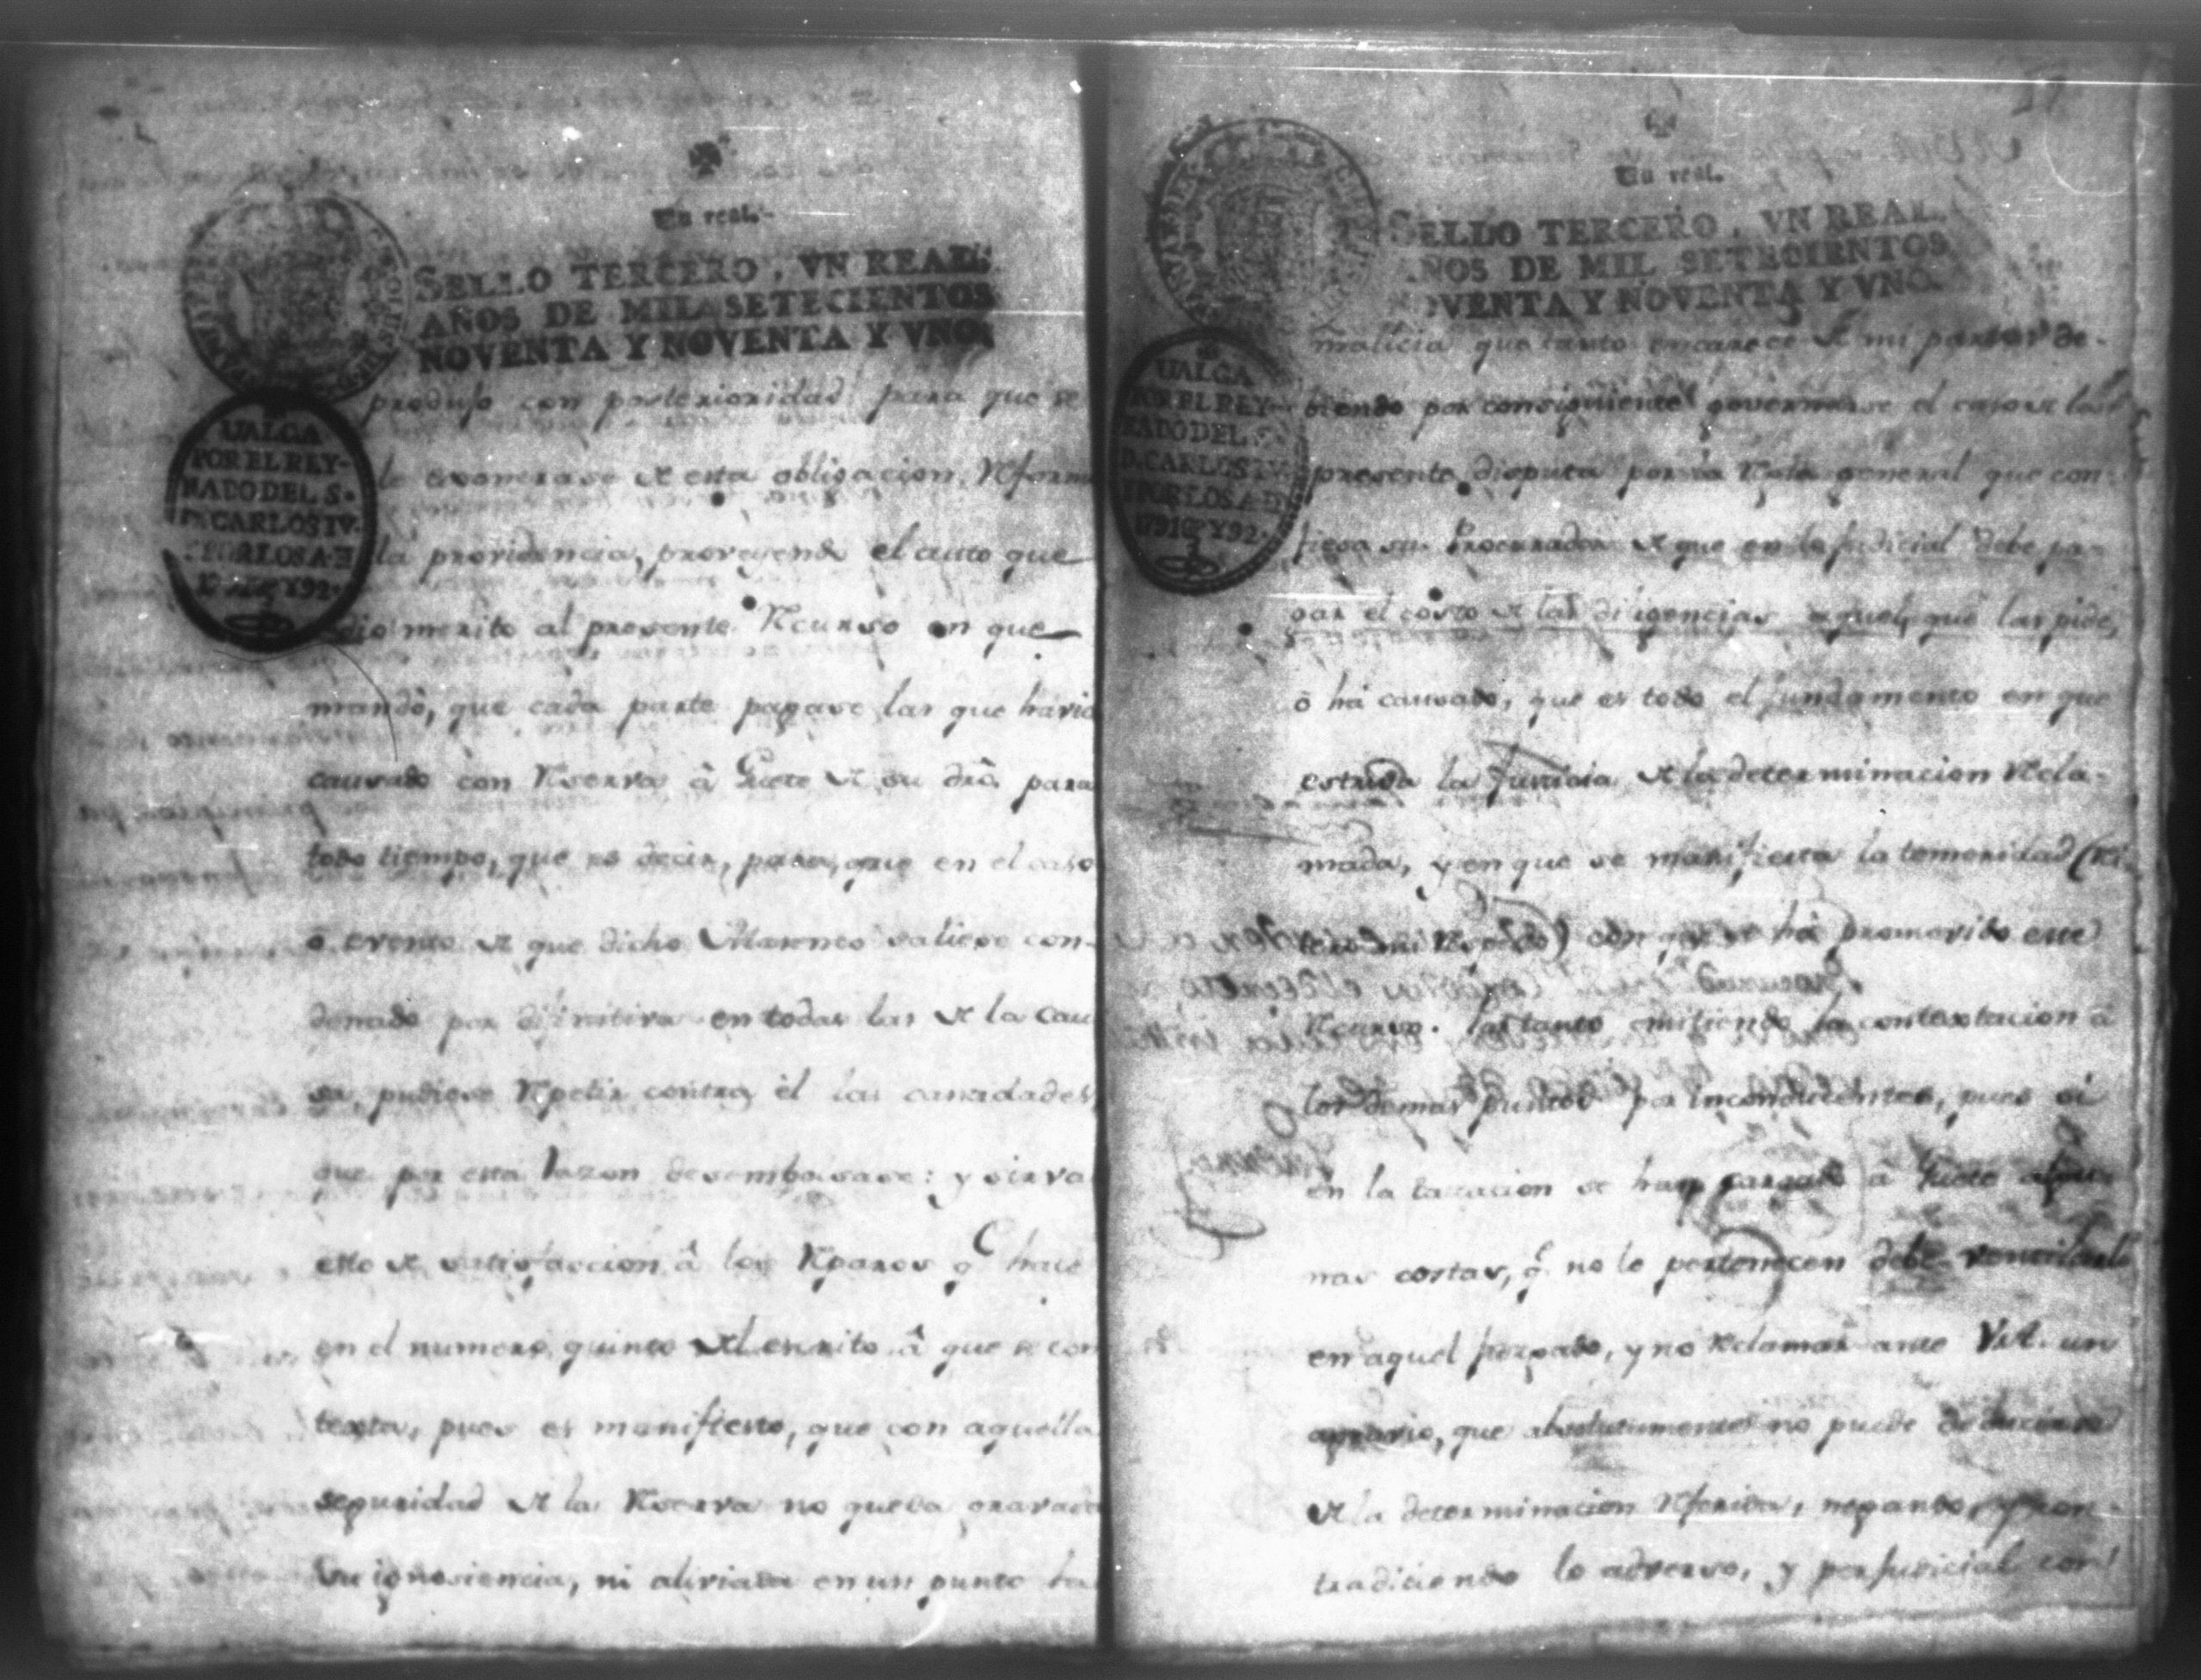 Un real.
SELLO TERCERO, VN REAL.
AÑOS DE MIL SETECIENTOS
NOVENTA Y NOVENTA Y VNO.
UALGA
POR EL REY-
NADO DEL S.
D. CARLOS IV.
POR LOS A. D
Y 92.
produjo con posterioridad para que se
le exonerase de esta obligacion, Reformó
la providencia, proveyendo el auto que
dio merito al presente Recurso en que
mandò, que cada parte pagase las que havia
causado con Reserva â Guete de su dro. para
todo tiempo, que es decir, para que en el caso
ô evento de que dicho saliese con-
denado por difinitiva en todas las de la cau
sa, pudiese Repetir contra èl las cantidades,
que por esta razon desembolsase: y sirva
esto de satisfaccion â los Reparos q.e hace
en el numero quinto del escrito â que se con
texta, pues es manifiesto, que con aquella
seguridad de la Reserva no queda gravada
su ignosiencia, ni aliviada en un punto la
Un real.
SELLO TERCERO, VN REAL.
AÑOS DE MIL SETECIENTOS
NOVENTA Y NOVENTA Y VNO.
UALGA
POR EL REY-
NADO DEL S.
D. CARLOS IV.
POR LOS A. D
1791 Y 92.
malicia que tanto encarece de mi parte de-
biendo por consiguiente governarse el caso de la
presente disputa por la Regla general que con-
fiesa su Procurador de que en lo Judicial debe pa-
gar el costo de las diligencias aquel, que las pide,
ô ha causado, que es todo el fundamento en que
estriva la Justicia de la determinacion Recla-
mada, y en que se manifiesta la temeridad
con que se há promovido este
Recurso. Por tanto omitiendo la contextacion â
los demas puntos por inconducentes, pues si
en la tasacion se han cargado â Guete algu-
nas costas, q.e no le pertenecen debe ventilarlo
en aquel Juzgado, y no Reclamar ante V.A. un
agravio, que absolutamente no puede deducirse
de la determinacion Referida, negando, y con-
tradiciendo lo adverso, y perjudicial con